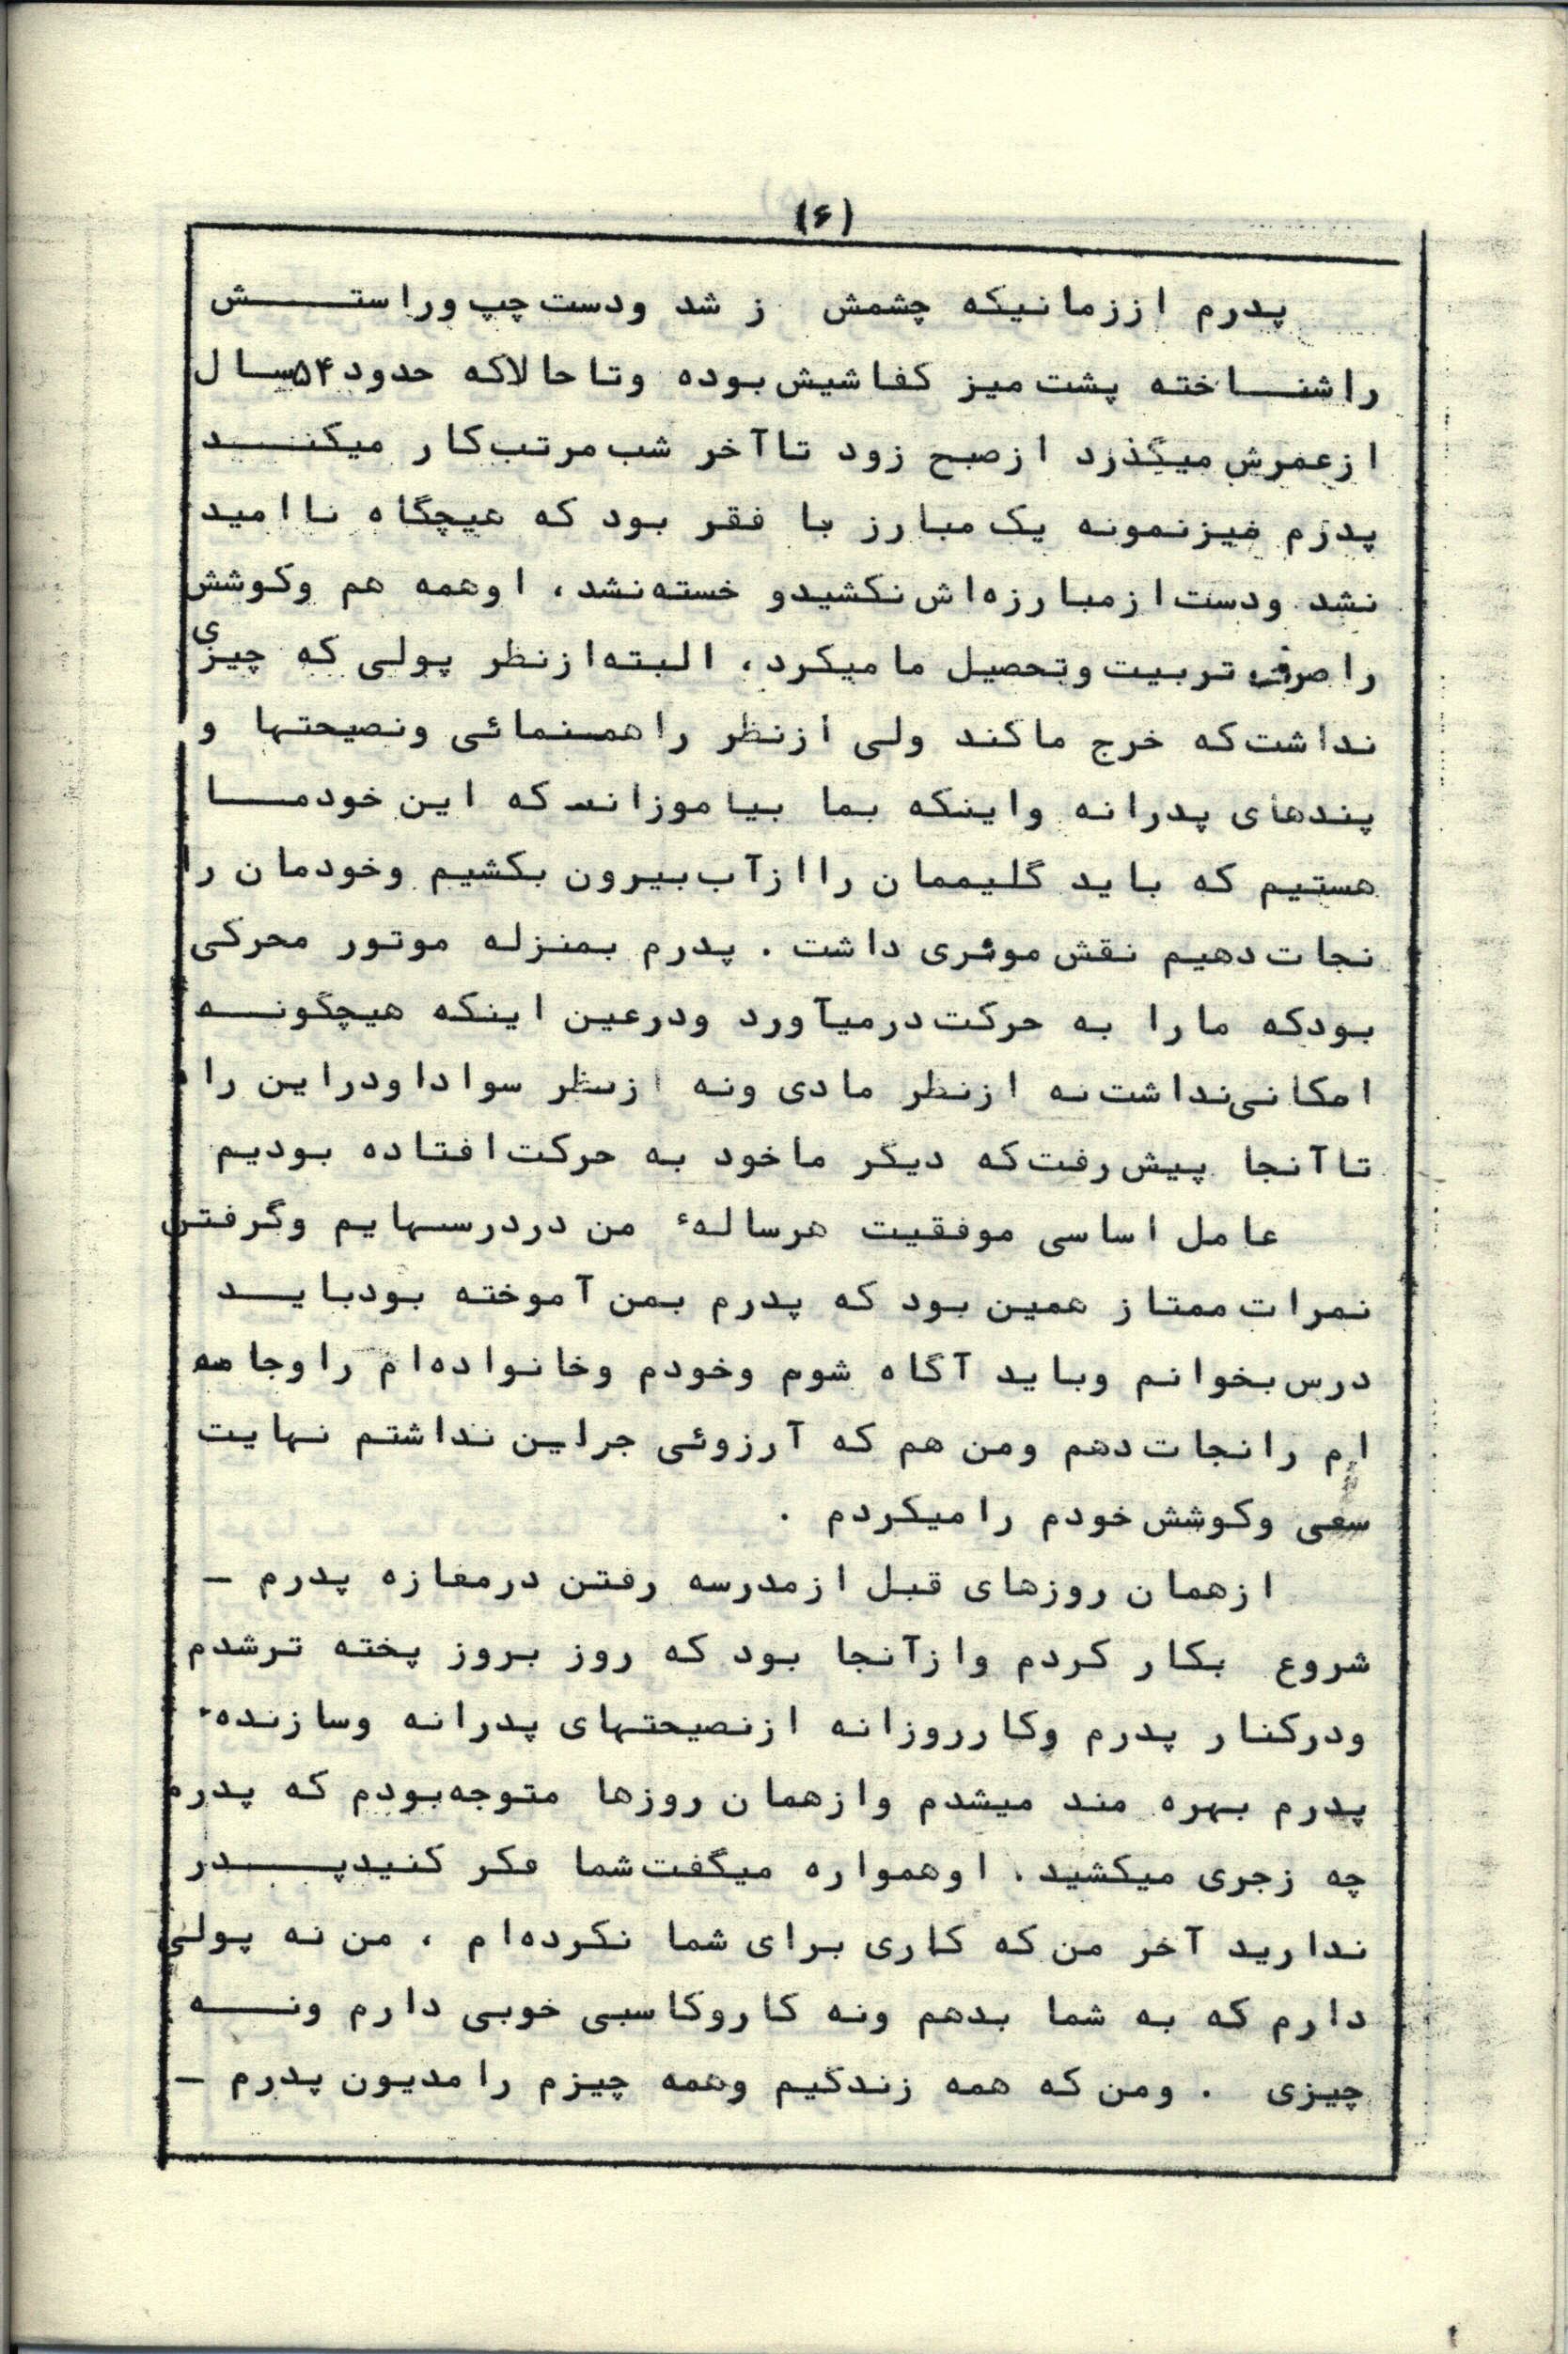 (۶)
پدرم اززمانیکه چشمش ز شد ودست چپ وراستش
راشناخته پشت میز کفاشیش بوده وتاحالاکه حدود ۵۴سال
ازعمرش میگذرد ازصبح زود تاآخر شب مرتب کار میکند
پدرم نیزنمونه یک مبارز با فقر بود که هیچگاه ناامید
نشد ودست ازمبارزه‌اش نکشیدو خسته نشد، اوهمه هم وکوشش
را صرف تربیت وتحصیل مامیکرد، البته ازنظر پولی که چیزی
نداشت که خرج ماکند ولی ازنظر راهنمائی ونصیحتها و
پندهای پدرانه واینکه بما بیاموزاند که این خودما
هستیم که باید گلیممان راازآب بیرون بکشیم وخودمان را
نجات دهیم نقش موثری داشت . پدرم بمنزله موتور محرکی
بودکه مارا به حرکت درمیآورد ودرعین اینکه هیچگونه
امکانی نداشت نه ازنظر مادی ونه ازنظر سواداودراین راه
تاآنجا پیش رفت که دیگر ماخود به حرکت افتاده بودیم
عامل اساسی موفقیت هرسالهٔ من دردرسهایم وگرفتن
نمرات ممتاز همین بود که پدرم بمن آموخته بودباید
درس بخوانم وباید آگاه شوم وخودم وخانواده‌ام راوجامعه
ام رانجات دهم ومن هم که آرزوئی جزاین نداشتم نهایت
سعی وکوشش خودم رامیکردم .
ازهمان روزهای قبل ازمدرسه رفتن درمغازه پدرم –
شروع بکار کردم وازآنجا بود که روز بروز پخته ترشدم
ودرکنار پدرم وکارروزانه ازنصیحتهای پدرانه وسازندهٔ
پدرم بهره مند میشدم وازهمان روزها متوجه بودم که پدرم
چه زجری میکشید . اوهمواره میگفت شما فکر کنیدپدر
ندارید آخر من که کاری برای شما نکرده‌ام ، من نه پولی
دارم که به شما بدهم ونه کاروکاسبی خوبی دارم ونه
چیزی . ومن که همه زندگیم وهمه چیزم رامدیون پدرم –